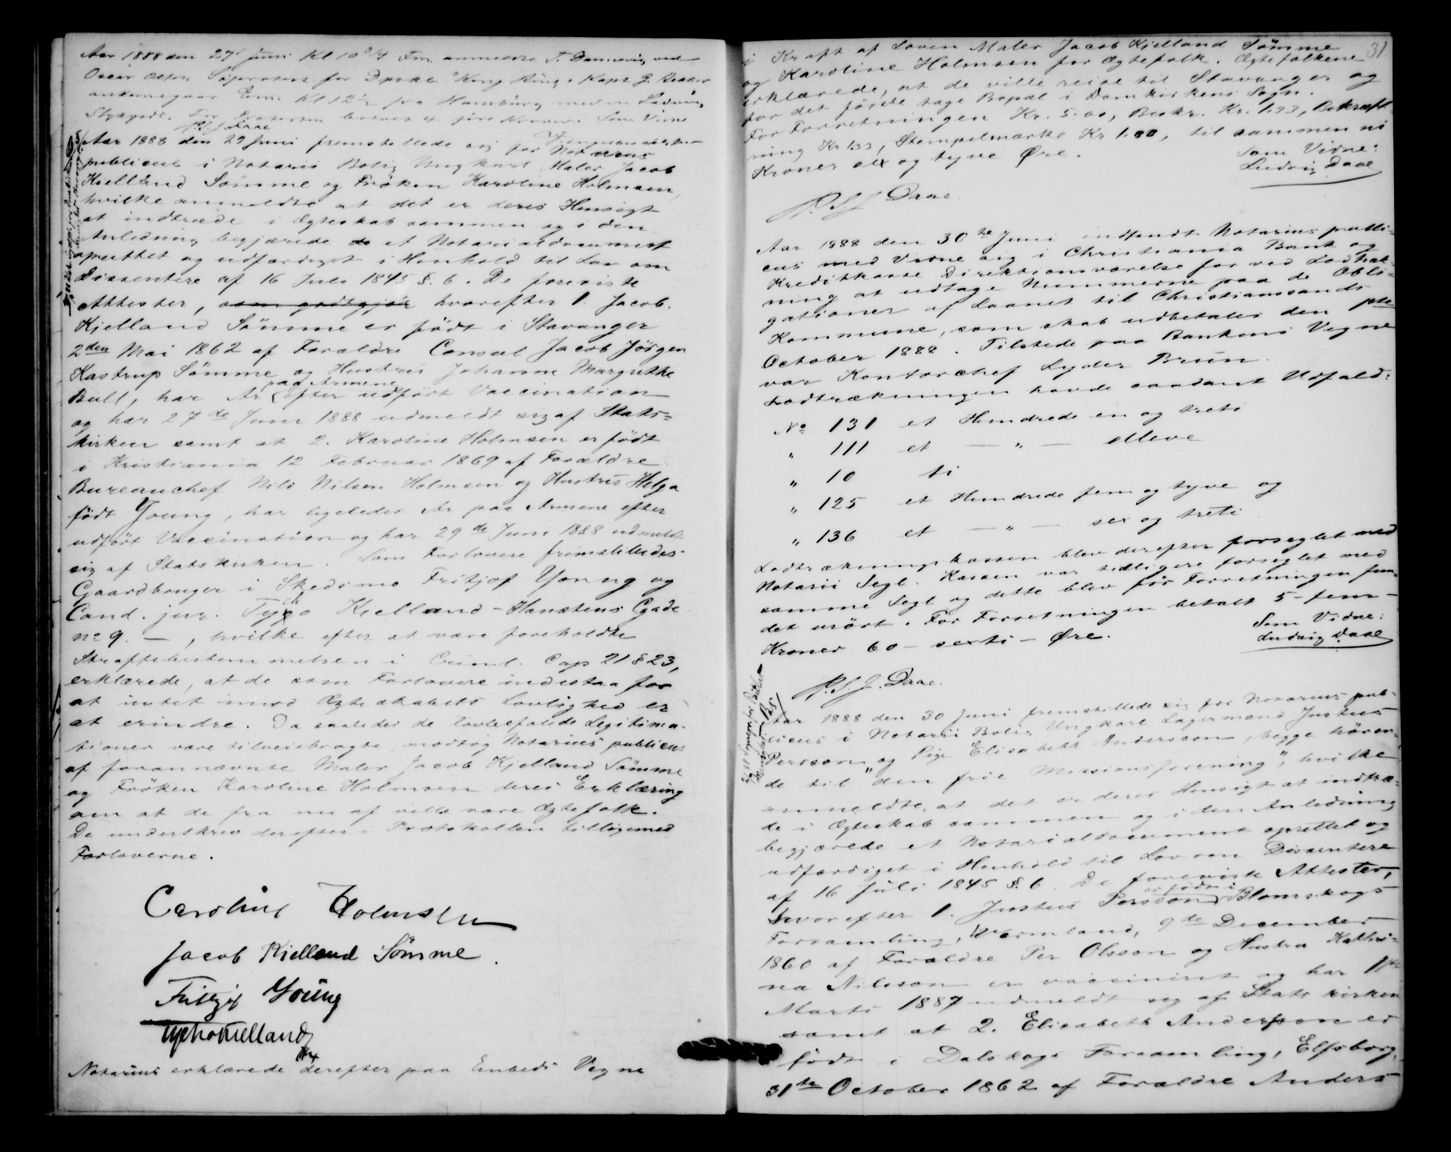 Aar 1888 den 27' Juni Kl 10 3/4 Fm. anmeldte T. ved
Oscar Olsen Søprotest for Kong Ring, Kapt. J.
ankommen Kl 12 fra Hamburg med en Ladning
Stykgods.
Aar 1888 den 29 Juni fremstillede sig for Notarius
publicus i Notarii Bolig Ungkarl Maler Jacob
Kielland Sømme og Frøken Karoline Holmsen,
hvilke anmeldte at det er deres Hensigt
at indtræde i Ægteskab sammen og i den
Anledning begjærede et Notarialdocument
oprettet og udfærdiget i Henhold til Lov om
Dissentere af 16 Juli 1845 § 6. De foreviste
Attester, som godtgjør hvorefter 1 Jacob
Kjelland Sømme er født i Stavanger
2den Mai 1862 af Forældre Consul Jacob Jørgen
Kastrup Sømme og Hustru Johanne Margrethe
Bull, har Ar paa Armene efter udført Vaccination
og har 27de Juni 1888 udmeldt sig af Stats-
kirken samt at 2. Karoline Holmsen er født
i Kristiania 12 Februar 1869 af Forældre
Bureauchef Nils Nilsen Holmsen og Hustru Helga
født Young, har ligeledes Ar paa Armene efter
udført Vaccination og har 29de Juni 1888 udmeldt
sig af Statskirken. Som Forlovere fremstilledes
Gaardbruger i Skedsmo Fritjof Young og
Cand. jur. Tycho Kielland - Hansteens Gade
no 9. —, hvilke efter at være foreholdte
Straffebestemmelsen i Criml. Cap 21 § 23,
erklærede, at de som Forlovere indestaa for
at intet mod Ægteskabets Lovlighed er
at erindre. Da saaledes de lovbefalede Legitima-
tioner vare tilveiebragte, modtog Notarius publicus
af forannævnte Maler Jacob Kjelland Sømme
og Frøken Karoline Holmsen deres Erklæring
om at de fra nu af ville være Ægtefolk.
De underskrev derefter i Protokollen tilligemed
Forloverne.
Caroline Holmsen
Jacob Kielland Sømme.
Fritjof Young
Tycho Kielland
Notarius erklærede derefter paa Embeds Vegne
31
i Kraft af Loven Maler Jacob Kjelland Sømme
og Karoline Holmsen for Ægtefolk. Ægtefolkene
erklærede, at de ville reise til Stavanger og
for det første tage Bopæl i Domkirkens Sogn.
For Forretningen Kr. 5.00, Beskr. Kr. 1.33, Bekræft
ning Kr 1.33, Stempelmærke Kr 1.00, til sammen ni
Kroner sex og tyve Øre.
Som Vidne:
Ludvig Daae
Daae.
Aar 1888 den 30te Juni indfandt Notarius publi-
cus med Vidne sig i Christiania Bank og
Kreditkasse Direktionsværelse for ved Lodtræk-
ning at udtage Nummerne paa de Obli-
gationer af Laanet til Christianssands
Kommune, som skal udbetales den 1ste
October 1888. Tilstede paa Bankens Vegne
var Kontorchef Lyder Brun.
Lodtrækningen havde saadant Udfald:
No 131 et Hundrede en og treti
" 111 et — " — elleve
" 10 ti
" 125 et Hundrede fem og tyve og
" 136 et — " — sex og treti
Lodtrækningskassen blev derefter forseglet med
Notarii Segl. Kassen var tidligere forseglet med
samme Segl og dette blev før Forretningen fun-
det urørt. For Forretningen betalt 5 - fem -
Kroner 60 - sexti - Øre.
Som Vidne:
Ludvig Daae
Daae.
Aar 1888 den 30 Juni fremstillede sig for Notarius pub-
licus i Notarii Bolig Ungkarl Lagermand Justus
Persson og Pige Elisabeth Andersson, begge høren-
de til "den frie Missionsforening", hvilke
anmeldte, at det er deres Hensigt at indtræ-
de i Ægteskab sammen og i den Anledning
begjærede et Notarialdocument oprettet og
udfærdiget i Henhold til Lov om Dissentere
af 16 Juli 1845 § 6. De foreviste Attester,
hvorefter 1. Justus Persson er født i Blomskogs
Forsamling, Wermland, 9de December
1860 af Forældre Per Olsson og Hustru Kathri-
na Nilsson er vaccineret og har 11te
Marts 1887 udmeldt sig af Statskirken
samt at 2. Elisabeth Andersson er
født i Dalskogs Forsamling, Elfsborg,
31te October 1862 af Forældre Anders